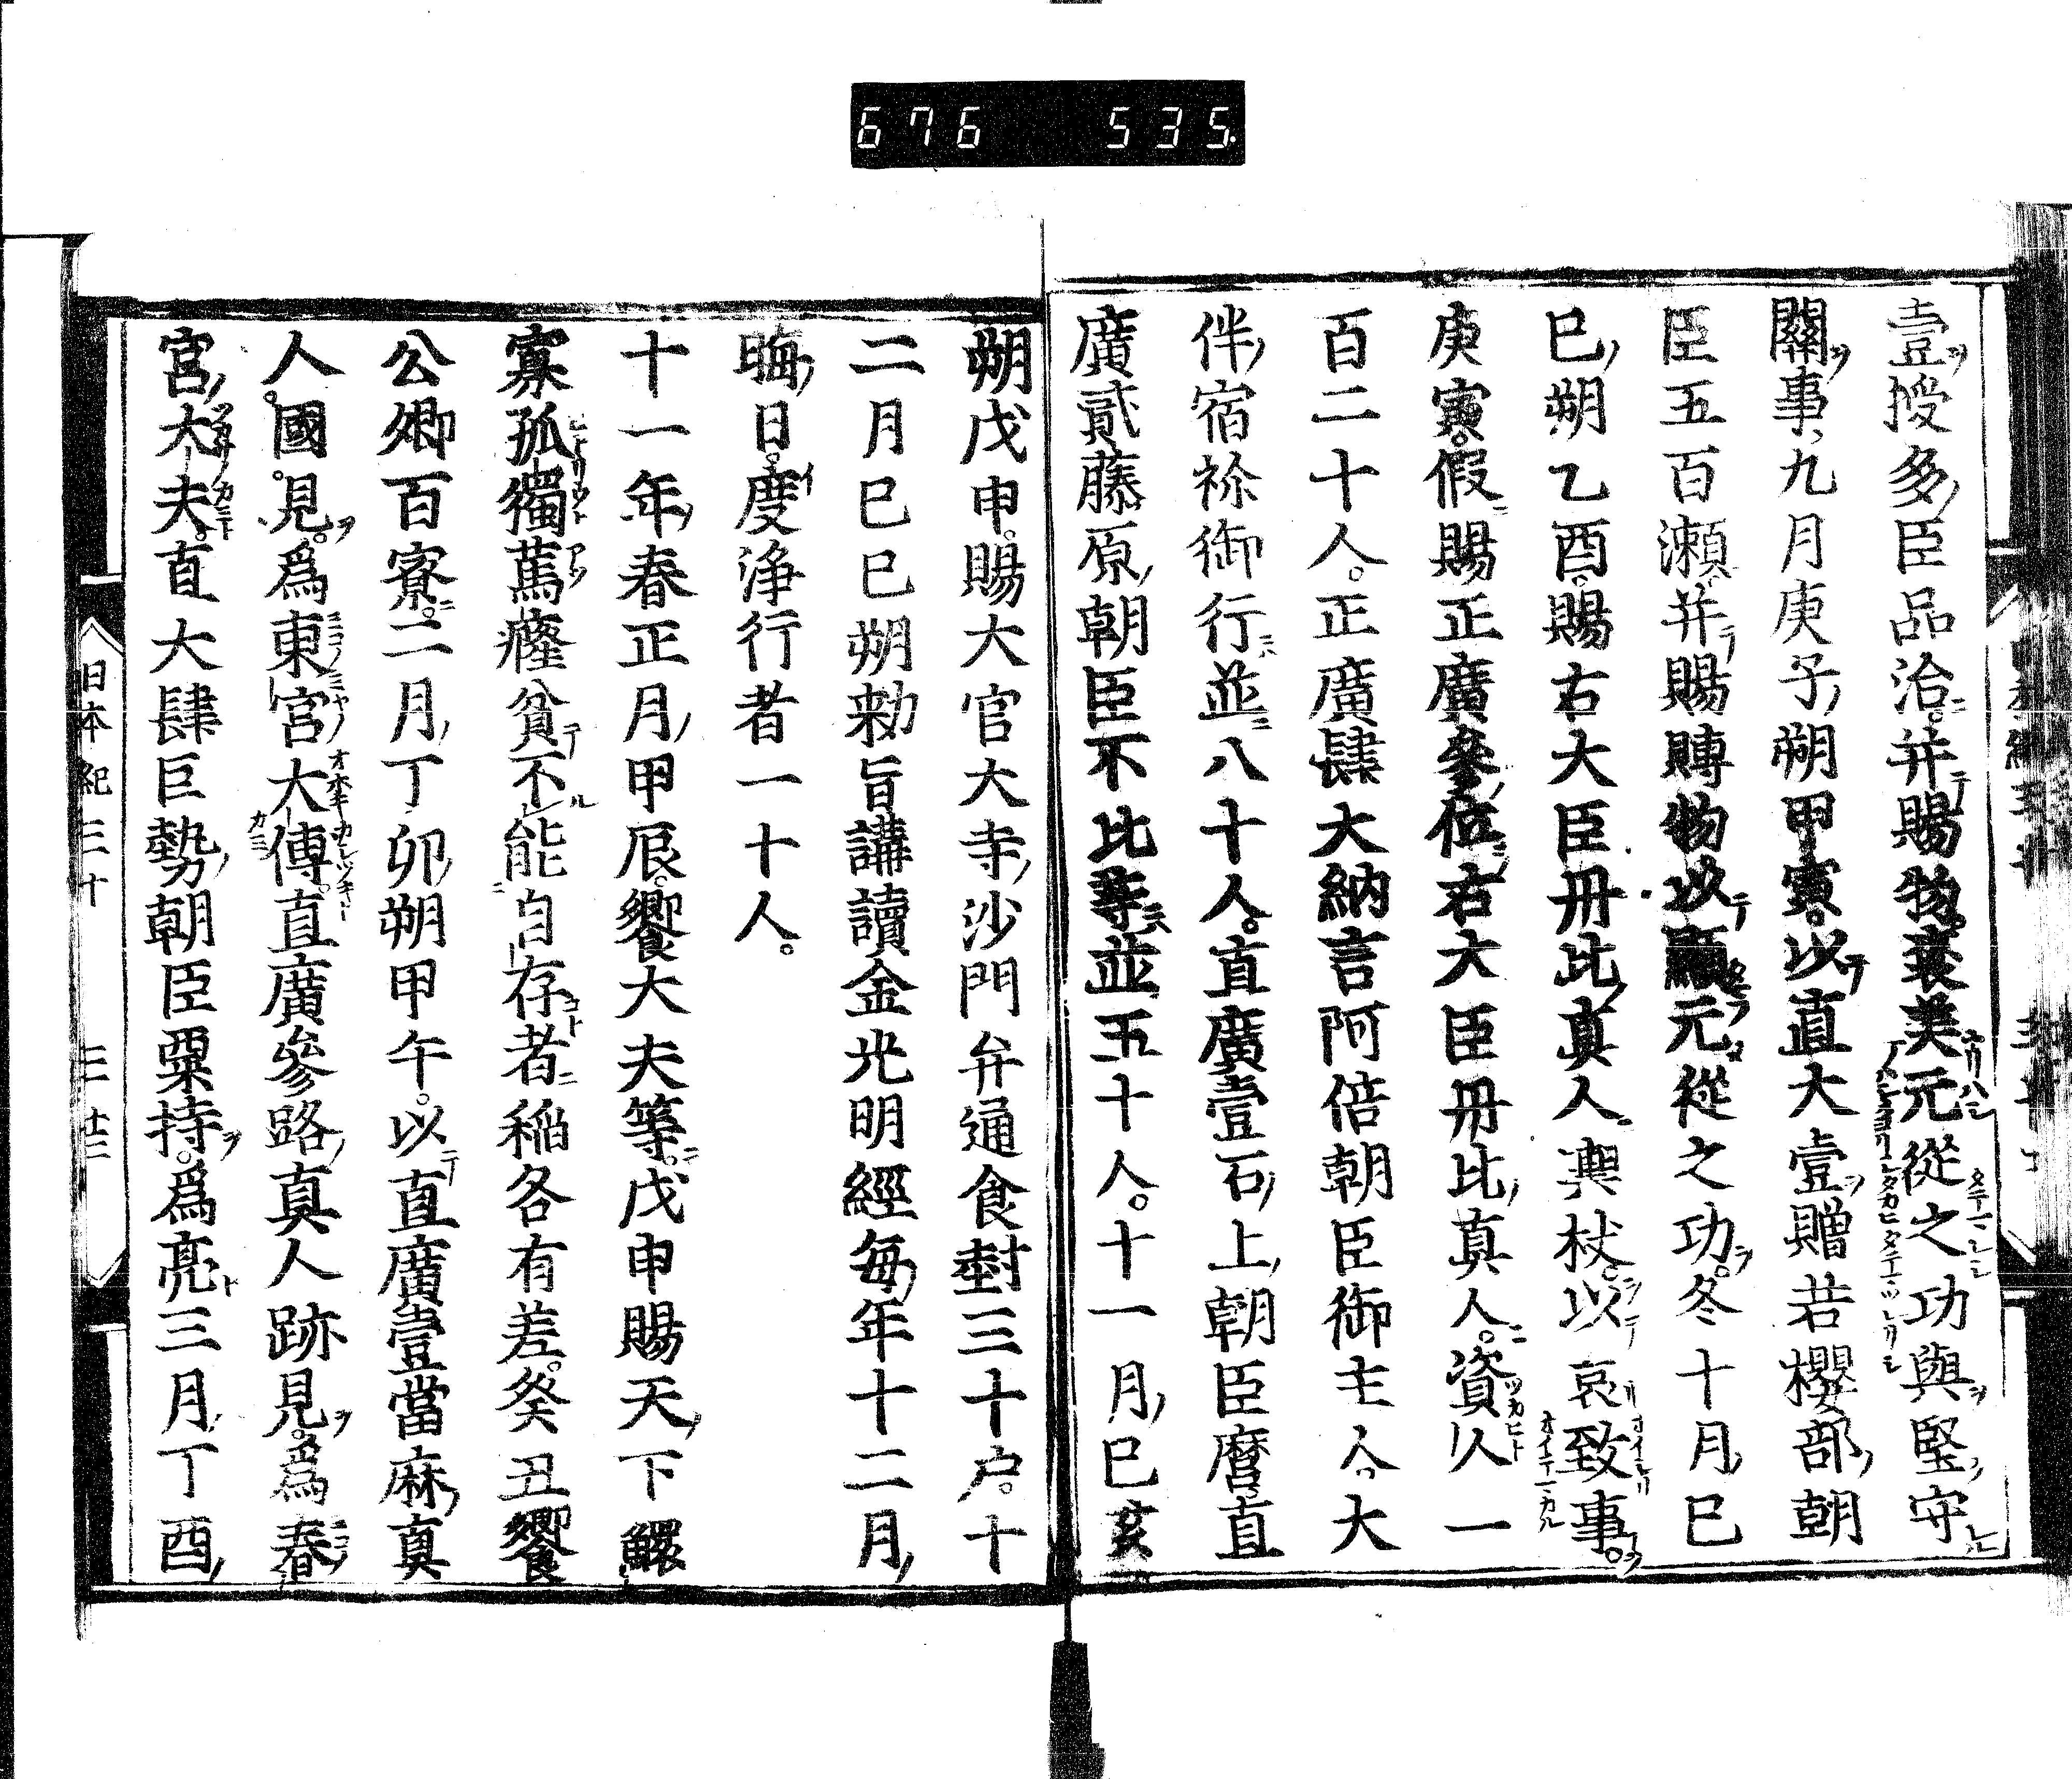 676 535.
壹授多臣品治并賜物襃美元從之功與堅守
關事九月庚子朔甲寅以直大壹贈若櫻部朝
臣五百瀬并賜賻物以顯元從之功冬十月己
巳朔乙酉賜右大臣丹比真人輿杖以哀致事
庚寅假賜正廣參位右大臣丹比真人資人一
百二十人正廣肆大納言阿倍朝臣御主人大
伴宿祢御行並八十人直廣壹石上朝臣麿直
廣貳藤原朝臣不比等並五十人十一月己亥
朔戊申賜大官大寺沙門弁通食封三十戶十
二月己巳朔勅旨講讀金光明經每年十二月
晦日度淨行者一十人
十一年春正月甲辰饗大夫等戊申賜天下鰥
寡孤獨篤癃貧不能自存者稲各有差癸丑饗
公卿百寮二月丁卯朔甲午以直廣壹當麻真
人國見爲東宮大傅直廣參路真人跡見爲春
宮大夫直大肆巨勢朝臣粟持爲亮三月丁酉
日本紀三十 三 廿三